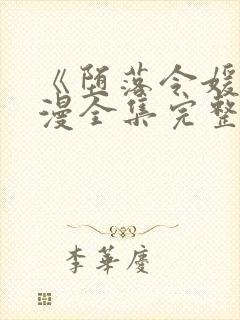 《堕落令媛
漫全集完整
李華慶